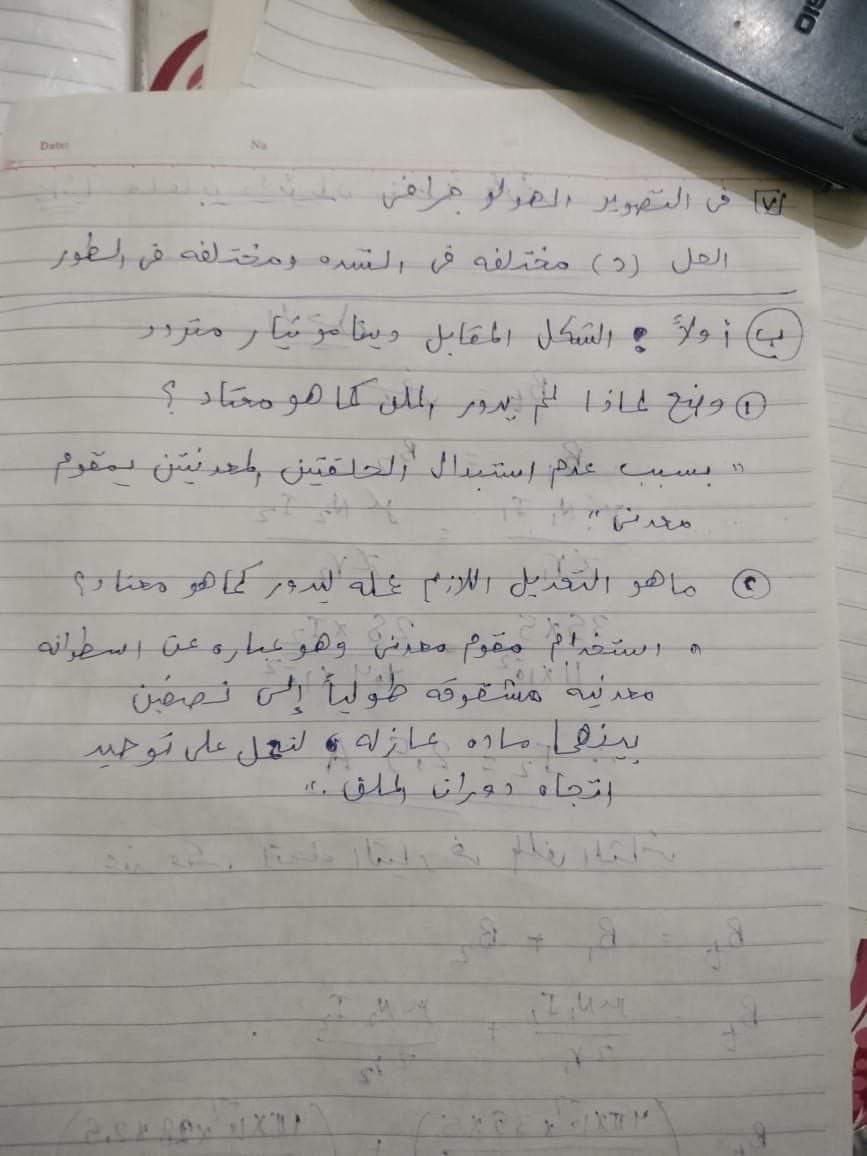 DIGI
Date:
No
٧ في التصوير الهولوجرافي
الحل (د) مختلفه في الشده ومختلفه في الطور
ب أولاً : الشكل المقابل دينامو تيار متردد
١ وضح لماذا لم يدور الملف كما هو معتاد ؟
" بسبب عدم استبدال الحلقتين المعدنيتين بمقوم
معدني "
٢ ما هو التعديل اللازم عمله ليدور كما هو معتاد ؟
" استخدام مقوم معدني وهو عباره عن اسطوانه
معدنيه مشقوقه طولياً إلى نصفين
بينهما ماده عازله لتعمل على توحيد
اتجاه دوران الملف . "